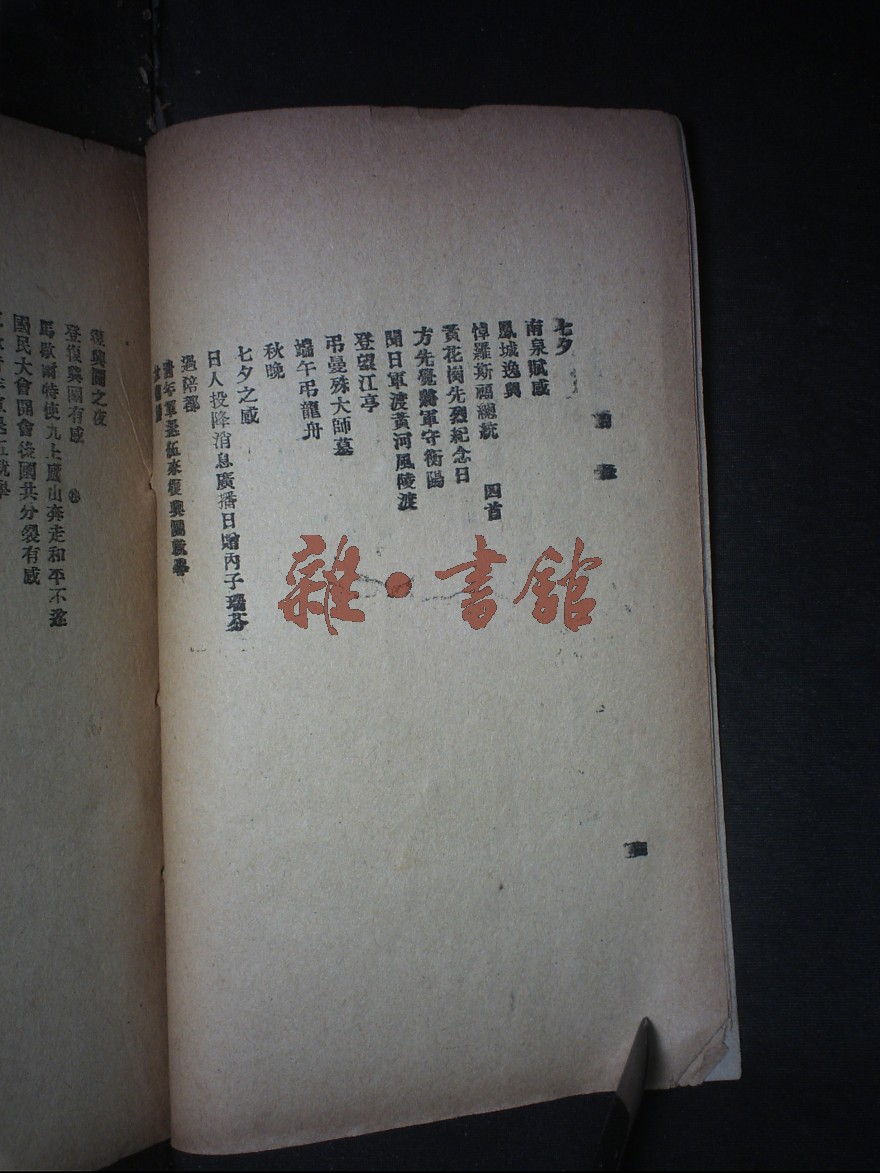 七夕
南泉賦感
鳳城逸興
悼羅斯福總統 四首
黃花崗先烈紀念日
方先覺將軍守衡陽
聞日軍渡黃河風陵渡
登望江亭
弔曼殊大師墓
端午弔龍舟
秋晚
七夕之感
日人投降消息廣播日贈內子瑞芬
過陪都
青年軍退伍來復興關就學
復興關之夜
登復興關有感
馬歇爾特使九上廬山奔走和平不逮
國民大會開會後國共分裂有感
雜·書館